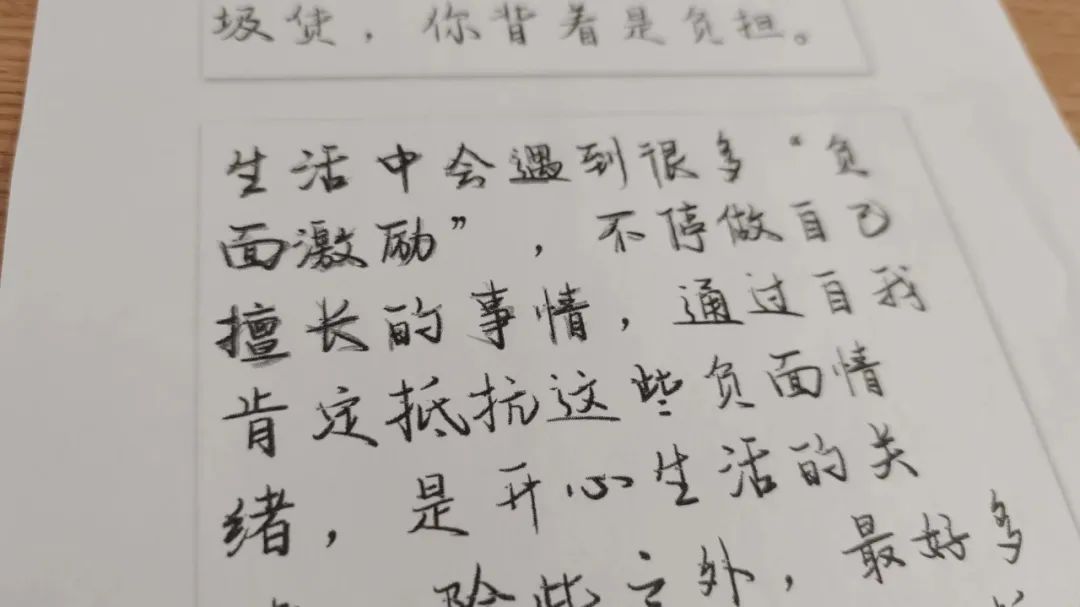 圾货，你背着是负担。
生活中会遇到很多“负
面激励”，不停做自己
擅长的事情，通过自我
肯定抵抗这些负面情
绪，是开心生活的关
除此之外，最好多